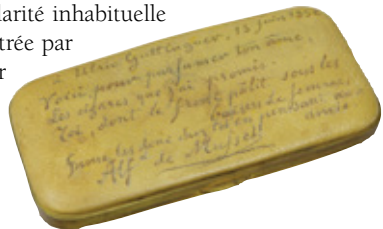 larité inhabituelle
trée par
r
à Ulric Guttinguer, 15 juin 18
Voici pour parfumer ton âme,
Les cigares que j'ai promis.
Toi, dont le front pâlit sous les
baisers de femmes,
Fume les donc chez toi en pensant aux
amis
Alf. de Musset